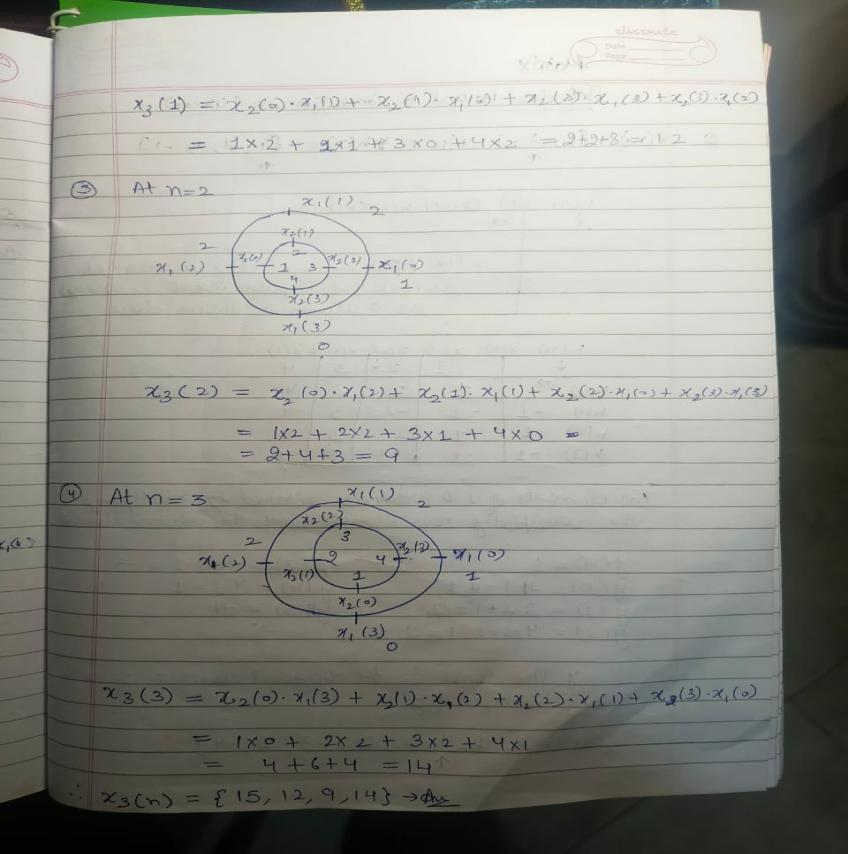 classmate
Date
Page
x₃(1) = x₂(0)·x₁(1) + x₂(1)·x₁(0) + x₂(2)·x₁(3) + x₂(3)·x₁(2)
= 1×2 + 2×1 + 3×0 + 4×2 = 2+2+8 = 12
③ At n=2
x₁(1) 2
x₂(1)
2
2
x₁(2) x₂(0) 1 3 x₂(2) x₁(0)
4 1
x₂(3)
x₁(3)
0
x₃(2) = x₂(0)·x₁(2) + x₂(1)·x₁(1) + x₂(2)·x₁(0) + x₂(3)·x₁(3)
= 1×2 + 2×2 + 3×1 + 4×0 =
= 2+4+3 = 9
④ At n=3
x₁(1) 2
x₂(2)
3
2
x₁(2) 2 4 x₂(3) x₁(0)
x₂(1) 1 1
x₂(0)
x₁(3)
0
x₃(3) = x₂(0)·x₁(3) + x₂(1)·x₁(2) + x₂(2)·x₁(1) + x₂(3)·x₁(0)
= 1×0 + 2×2 + 3×2 + 4×1
= 4+6+4 = 14
∴ x₃(n) = {15, 12, 9, 14} → Ans